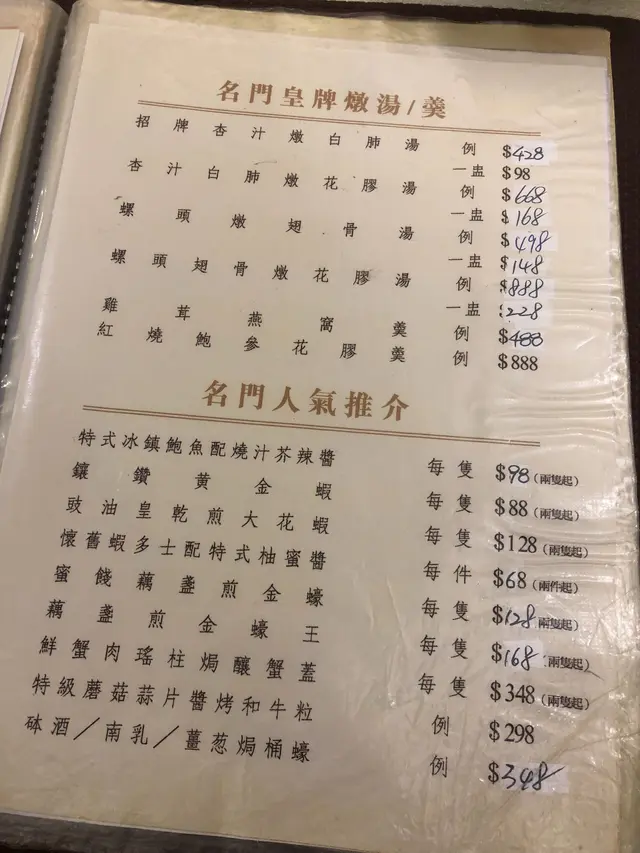 名門皇牌燉湯/羹
招牌杏汁燉白肺湯 例 $428
一盅 $98
杏汁白肺燉花膠湯 例 $668
一盅 $168
螺頭燉翅骨湯 例 $498
一盅 $148
螺頭翅骨燉花膠湯 例 $888
一盅 $228
雞茸燕窩羹 例 $488
紅燒鮑參花膠羹 例 $888
名門人氣推介
特式冰鎮鮑魚配燒汁芥辣醬 每隻 $98(兩隻起)
鑲鑽黃金蝦 每隻 $88(兩隻起)
豉油皇乾煎大花蝦 每隻 $128(兩隻起)
懷舊蝦多士配特式柚蜜醬 每件 $68(兩件起)
蜜餞藕盞煎金蠔 每隻 $128(兩隻起)
藕盞煎金蠔王 每隻 $168(兩隻起)
鮮蟹肉瑤柱焗釀蟹蓋 每隻 $348(兩隻起)
特級蘑菇蒜片醬烤和牛粒 例 $298
砵酒/南乳/薑葱焗桶蠔 例 $348